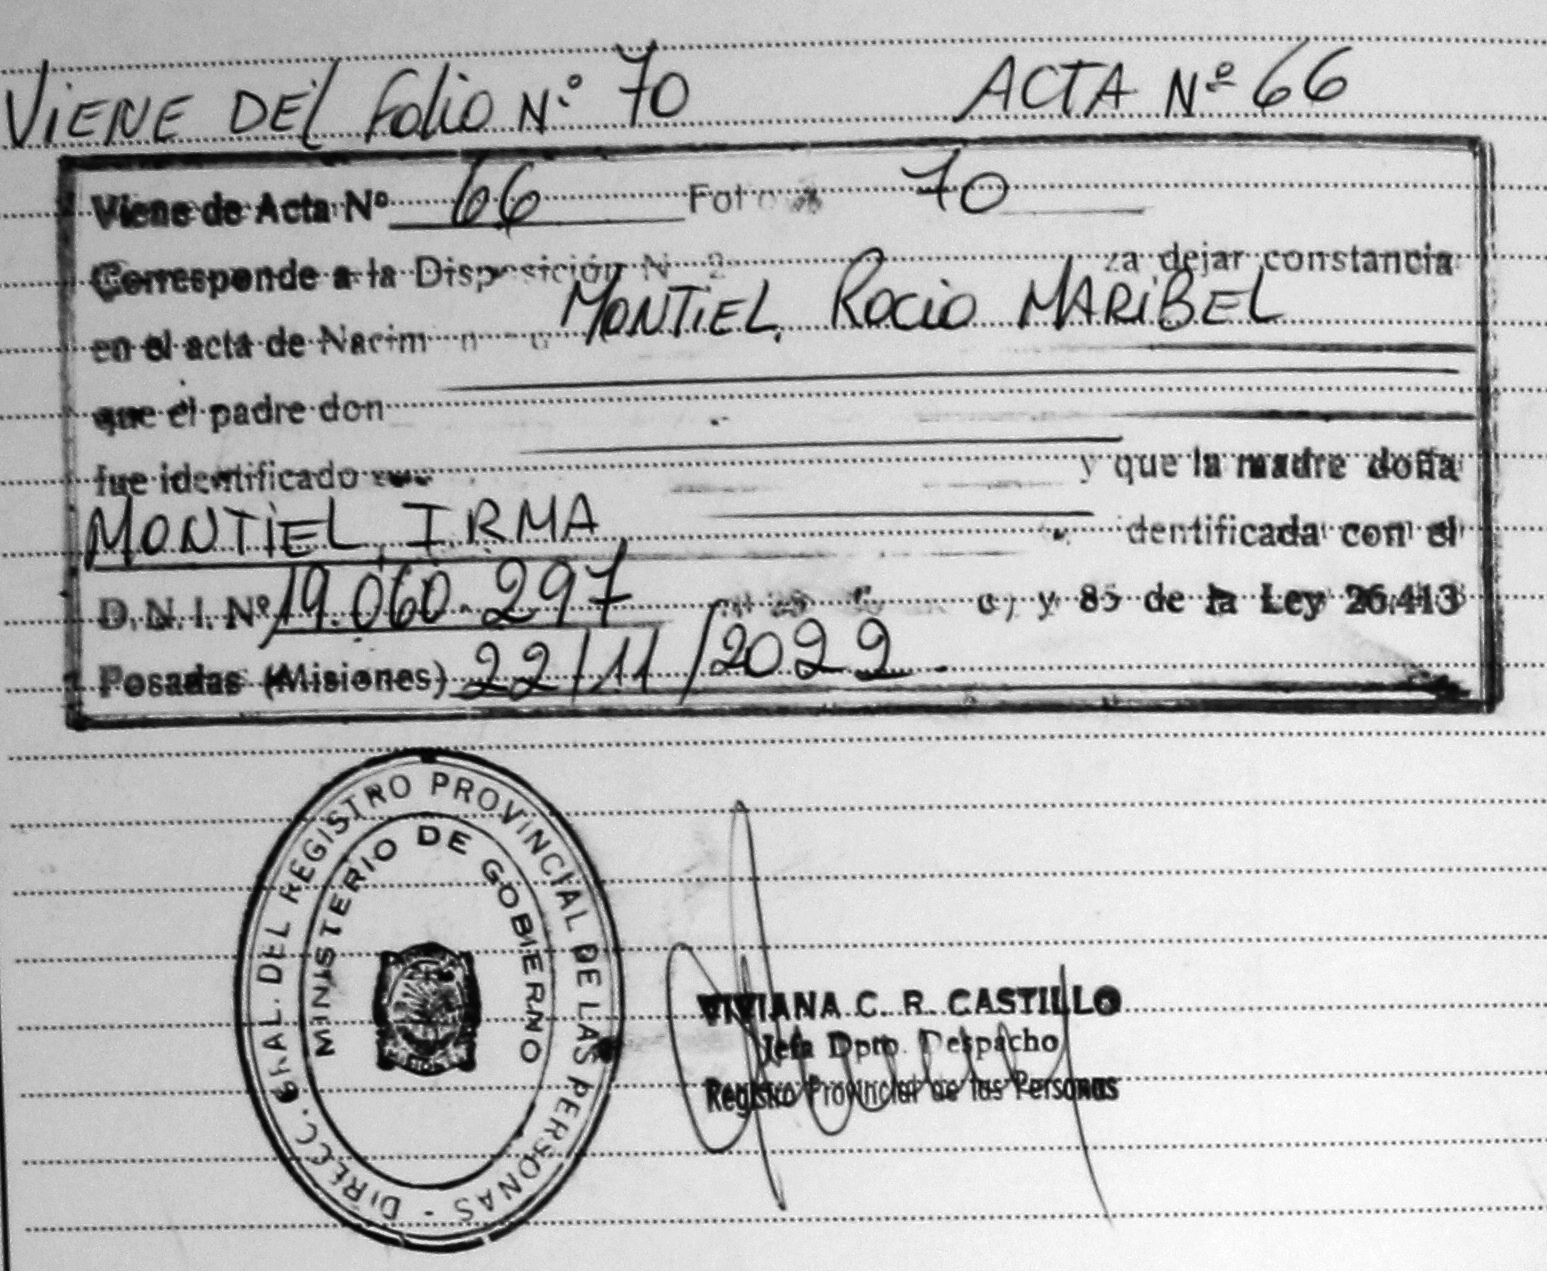 VIENE DEL FOLIO N° 70 ACTA Nº 66
Viene de Acta Nº 66 70
Corresponde a la Disposición N 2 dejar constancia
en el acta de MONTIEL, ROCIO MARIBEL
que el padre don
fue identificado y que la madre doña
MONTIEL, IRMA dentificada con el
D.N.I. Nº 19.060.297 c) y 85 de la Ley 26.413
Posadas (Misiones) 22/11/2022.
DIRECC. GRAL. DEL REGISTRO PROVINCIAL DE LAS PERSONAS -
MINISTERIO DE GOBIERNO
VIVIANA C. R. CASTILLO
Jefa Dpto. Despacho
Registro Provincial de las Personas